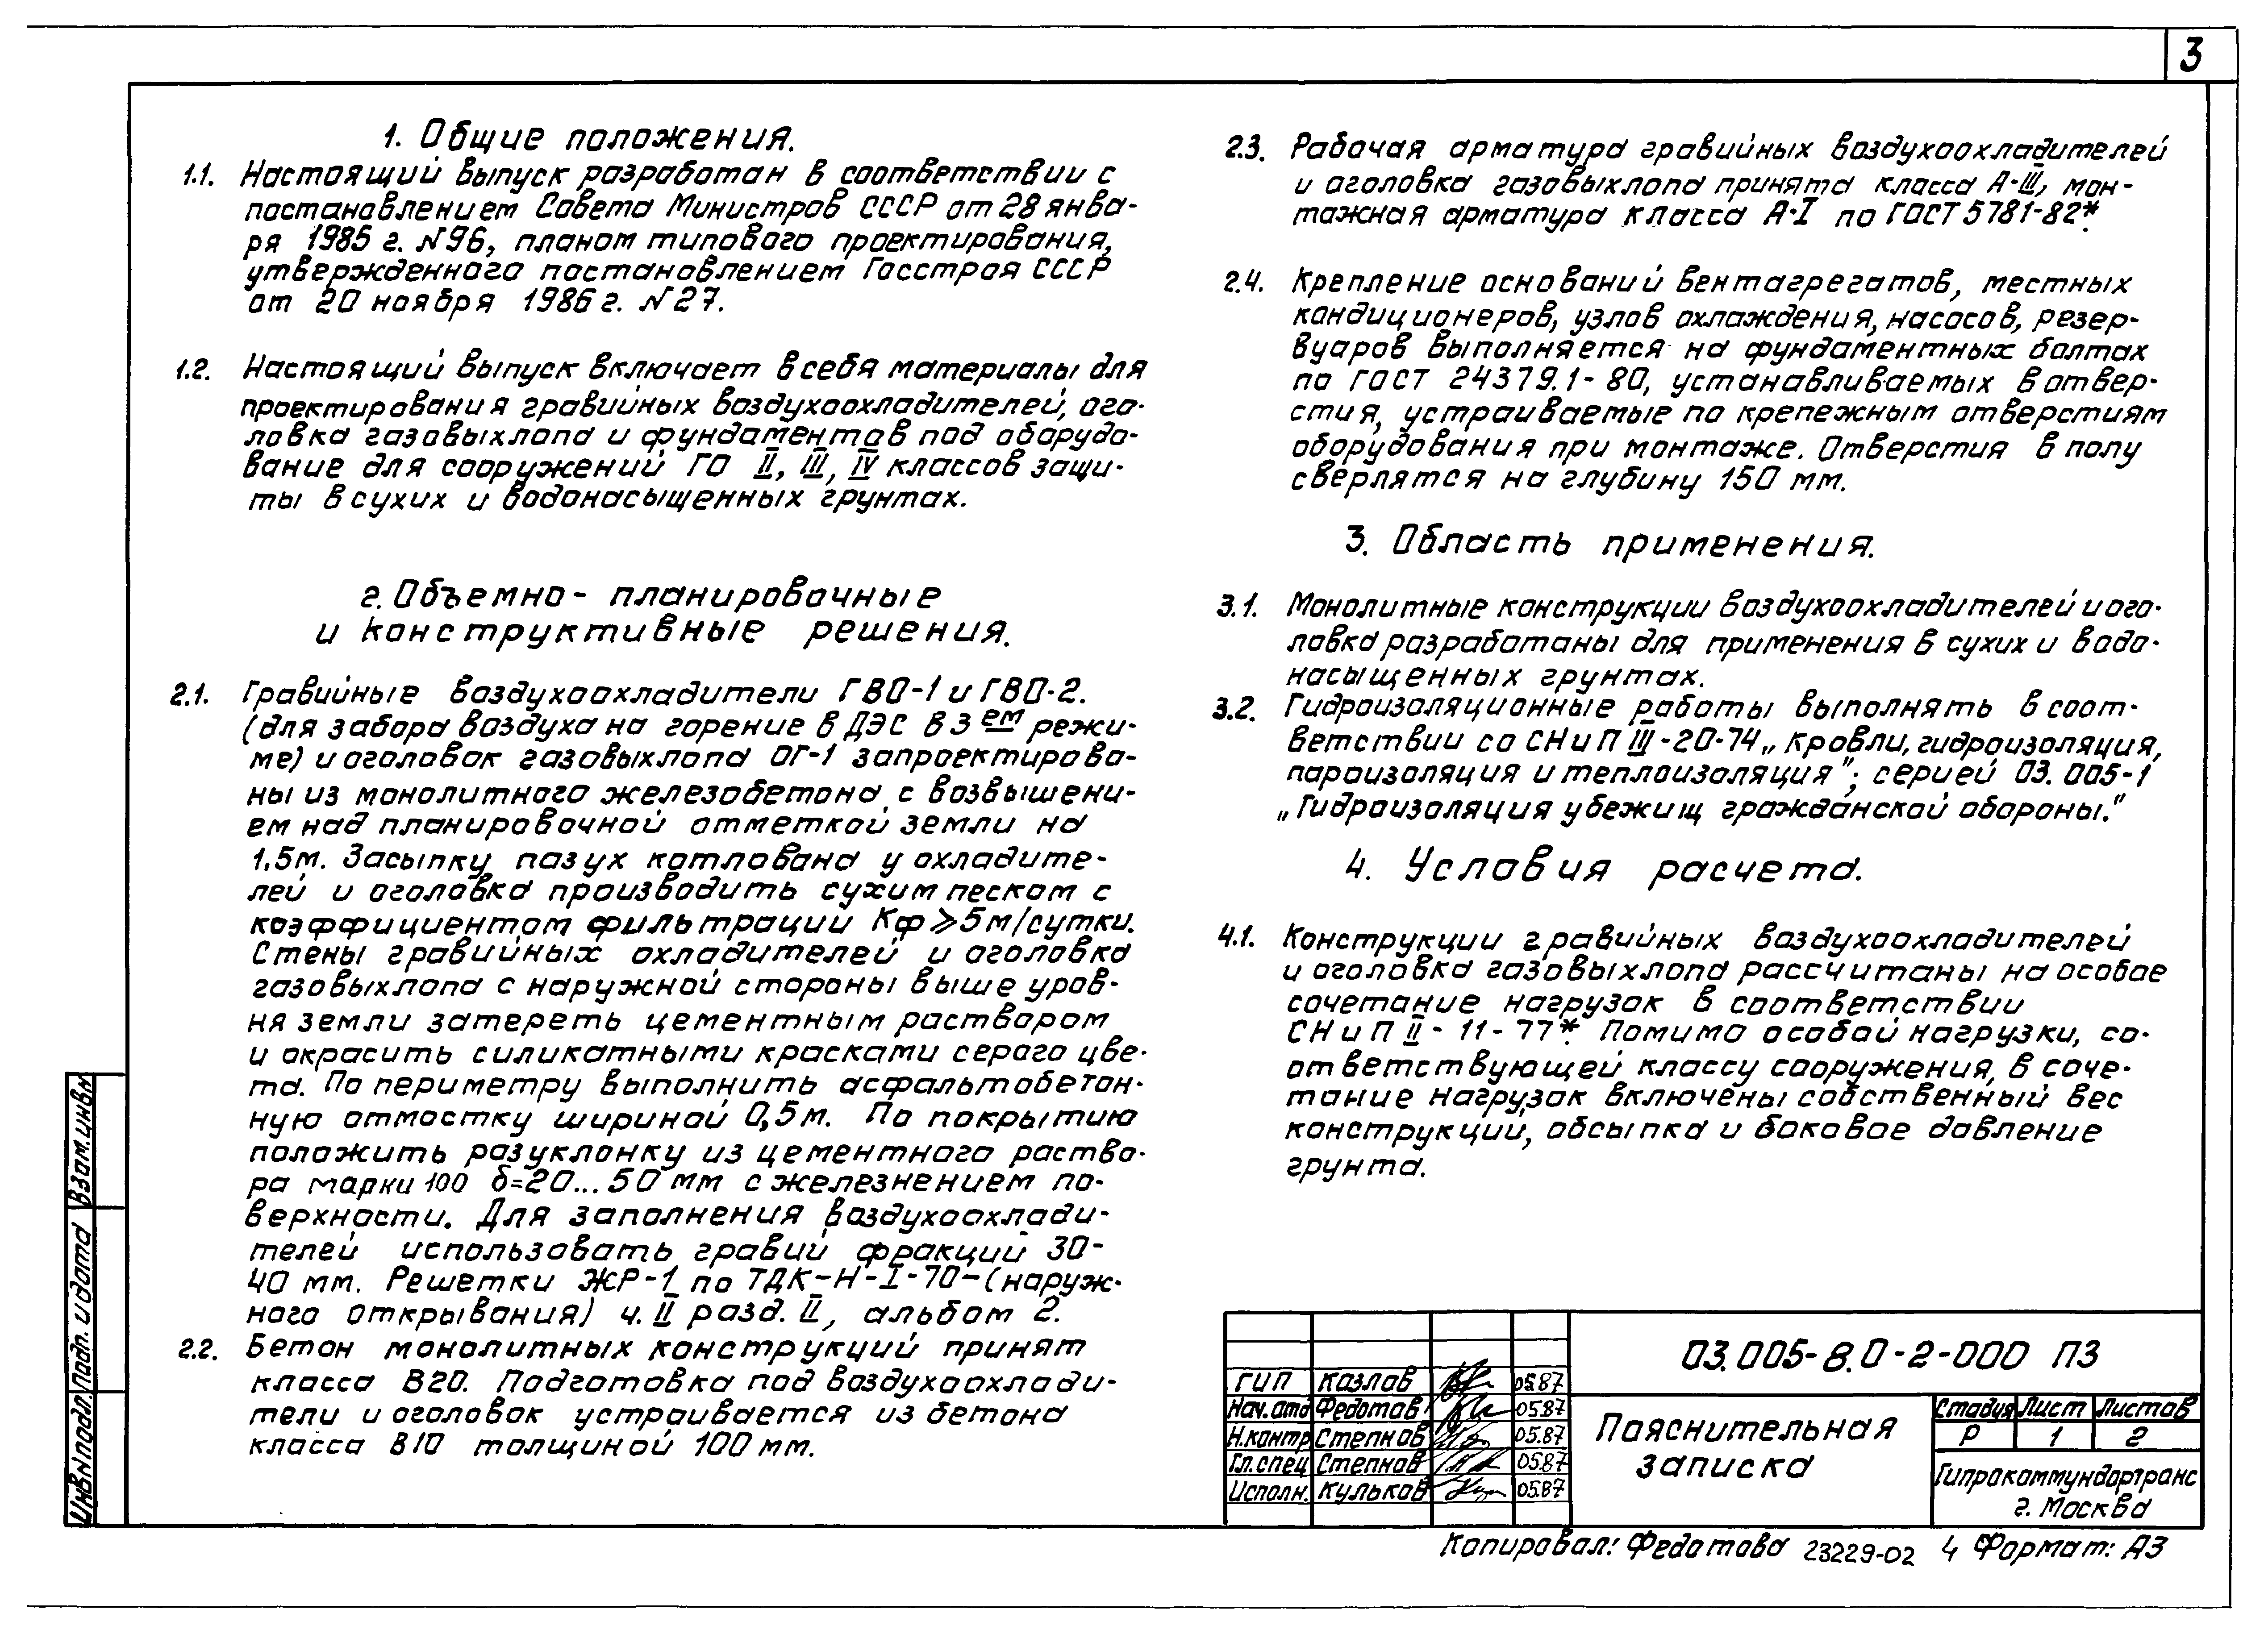 3
1. Общие положения.
1.1. Настоящий выпуск разработан в соответствии с
постановлением Совета Министров СССР от 28 янва-
ря 1985 г. N96, планом типового проектирования,
утвержденного постановлением Госстроя СССР
от 20 ноября 1986 г. N27.
1.2. Настоящий выпуск включает в себя материалы для
проектирования гравийных воздухоохладителей, ого-
ловка газовыхлопа и фундаментов под оборудо-
вание для сооружений ГО II, III, IV классов защи-
ты в сухих и водонасыщенных грунтах.
2. Объемно- планировочные
и конструктивные решения.
2.1. Гравийные воздухоохладители ГВО-1 и ГВО-2.
(для забора воздуха на горение в ДЭС в 3ем режи-
ме) и оголовок газовыхлопа ОГ-1 запроектирова-
ны из монолитного железобетона с возвышени-
ем над планировочной отметкой земли на
1.5м. Засыпку пазух котлована у охладите-
лей и оголовка производить сухим песком с
коэффициентом фильтрации Кф ⩾ 5 м/сутки.
Стены гравийных охладителей и оголовка
газовыхлопа с наружной стороны выше уров-
ня земли затереть цементным раствором
и окрасить силикатными красками серого цве-
та. По периметру выполнить асфальтобетон-
ную отмостку шириной 0,5м. По покрытию
положить разуклонку из цементного раство-
ра марки 100 δ=20...50 мм с железнением по-
верхности. Для заполнения воздухоохлади-
телей использовать гравий фракций 30-
40 мм. Решетки ЖР-1 по ТДК-Н-I-70-(наруж-
ного открывания) ч. II разд. II, альбом 2.
2.2. Бетон монолитных конструкций принят
класса В20. Подготовка под воздухоохлади-
тели и оголовок устраивается из бетона
класса В10 толщиной 100 мм.
2.3. Рабочая арматура гравийных воздухоохладителей
и оголовка газовыхлопа принята класса А-III, мон-
тажная арматура класса А-I по ГОСТ 5781-82*.
2.4. Крепление оснований вентагрегатов, местных
кондиционеров, узлов охлаждения, насосов, резер-
вуаров выполняется на фундаментных болтах
по ГОСТ 24379.1-80, устанавливаемых в отвер-
стия, устраиваемые по крепежным отверстиям
оборудования при монтаже. Отверстия в полу
сверлятся на глубину 150 мм.
3. Область применения.
3.1. Монолитные конструкции воздухоохладителей и ого-
ловка разработаны для применения в сухих и водо-
насыщенных грунтах.
3.2. Гидроизоляционные работы выполнять в соот-
ветствии со СНиП III-20-74 „Кровли, гидроизоляция,
пароизоляция и теплоизоляция"; серией 03.005-1
„Гидроизоляция убежищ гражданской обороны."
4. Условия расчета.
4.1. Конструкции гравийных воздухоохладителей
и оголовка газовыхлопа рассчитаны на особое
сочетание нагрузок в соответствии
СНиП II-11-77*. Помимо особой нагрузки, со-
ответствующей классу сооружения, в соче-
тание нагрузок включены собственный вес
конструкций, обсыпка и боковое давление
грунта.
Взам.инвN
Подп. и дата
ИнвNподл.
03.005-8.0-2-000 ПЗ
ГИП Козлов 05.87
Нач.отд Федотов 05.87
Н.контр Степнов 05.87
Гл.спец Степнов 05.87
Исполн. Кульков 05.87
Пояснительная
записка
Стадия Лист Листов
Р 1 2
Гипрокоммундортранс
г. Москва
Копировал: Федотова 23229-02 4 Формат: А3